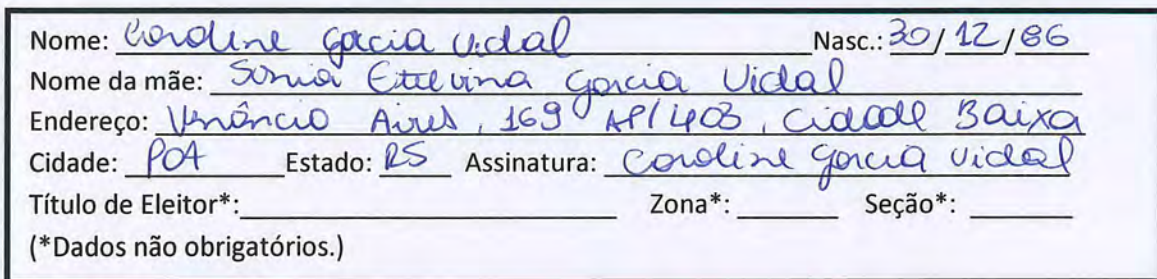 Nome: Caroline Garcia Vidal Nasc.: 30/12/86
Nome da mãe: Sonia Etelvina Garcia Vidal
Endereço: Venâncio Aires, 169 AP/403, Cidade Baixa
Cidade: POA Estado: RS Assinatura: Caroline Garcia Vidal
Título de Eleitor*: Zona*: Seção*:
(*Dados não obrigatórios.)